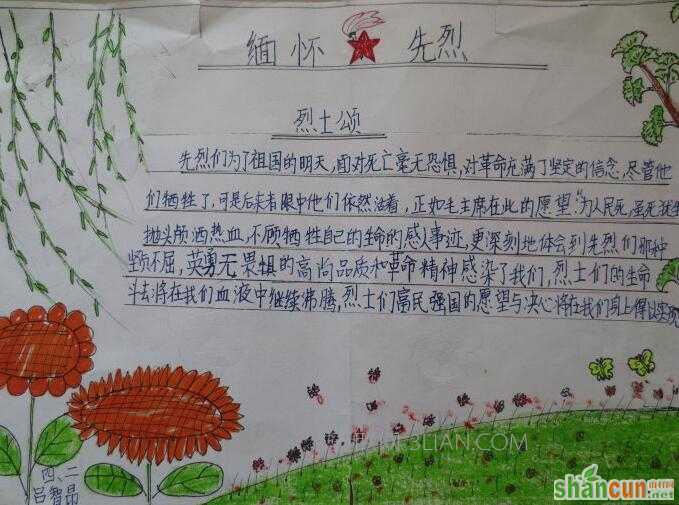 缅怀 先烈
烈士颂
先烈们为了祖国的明天,面对死亡毫无恐惧,对革命充满了坚定的信念,尽管他
们牺牲了,可是后来者眼中他们依然活着,正如毛主席在此的愿望"为人民死,虽死犹生
抛头颅洒热血,不顾牺牲自己的生命的感人事迹,更深刻地体会到先烈们那种
坚贞不屈,英勇无畏惧的高尚品质和革命精神感染了我们,烈士们的生命
斗去将在我们血液中继续沸腾,烈士们富民强国的愿望与决心将在我们身上得以实现
四、二
吕智晶
3LIAN.COM
shancun
.net